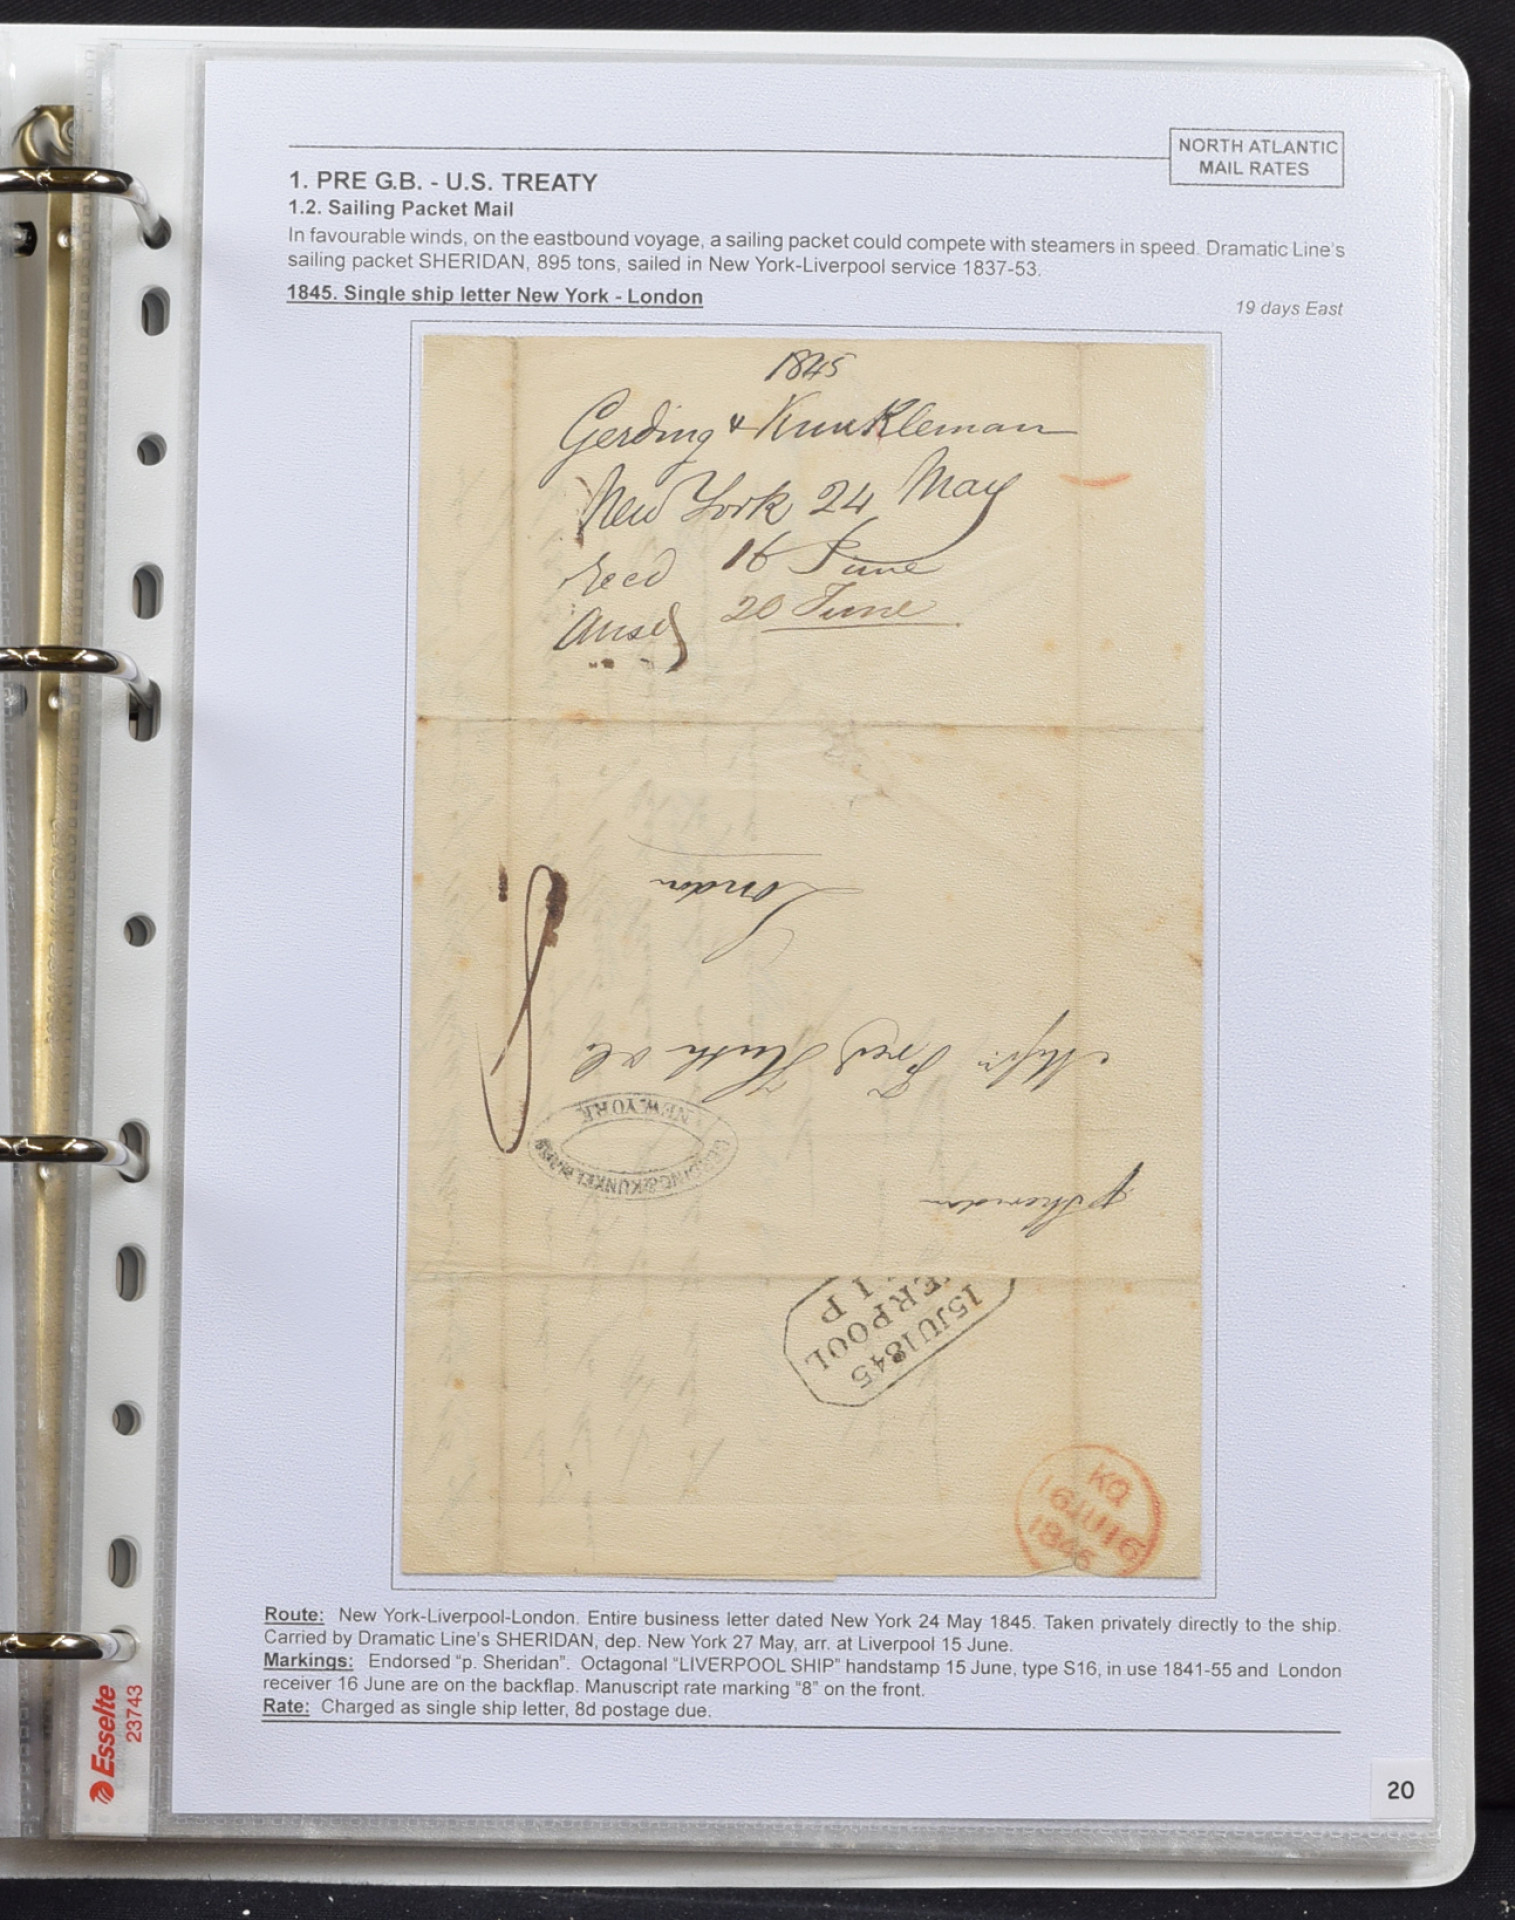 NORTH ATLANTIC
MAIL RATES
1. PRE G.B. - U.S. TREATY
1.2. Sailing Packet Mail
In favourable winds, on the eastbound voyage, a sailing packet could compete with steamers in speed. Dramatic Line's
sailing packet SHERIDAN, 895 tons, sailed in New York-Liverpool service 1837-53.
1845. Single ship letter New York - London
19 days East
1845
Gerding & Kunkleman
New York 24 May
Recd 16 June
Ansd 20 June
London
Messrs Fred Huth & Co
8
NEW.YORK
GERDING & KUNKELMANN
p Sheridan
15JU1845
ERPOOL
I P
KQ
16JU16
1845
Route: New York-Liverpool-London. Entire business letter dated New York 24 May 1845. Taken privately directly to the ship.
Carried by Dramatic Line's SHERIDAN, dep. New York 27 May, arr. at Liverpool 15 June.
Markings: Endorsed "p. Sheridan". Octagonal "LIVERPOOL SHIP" handstamp 15 June, type S16, in use 1841-55 and London
receiver 16 June are on the backflap. Manuscript rate marking "8" on the front.
Rate: Charged as single ship letter, 8d postage due.
Esselte
23743
20